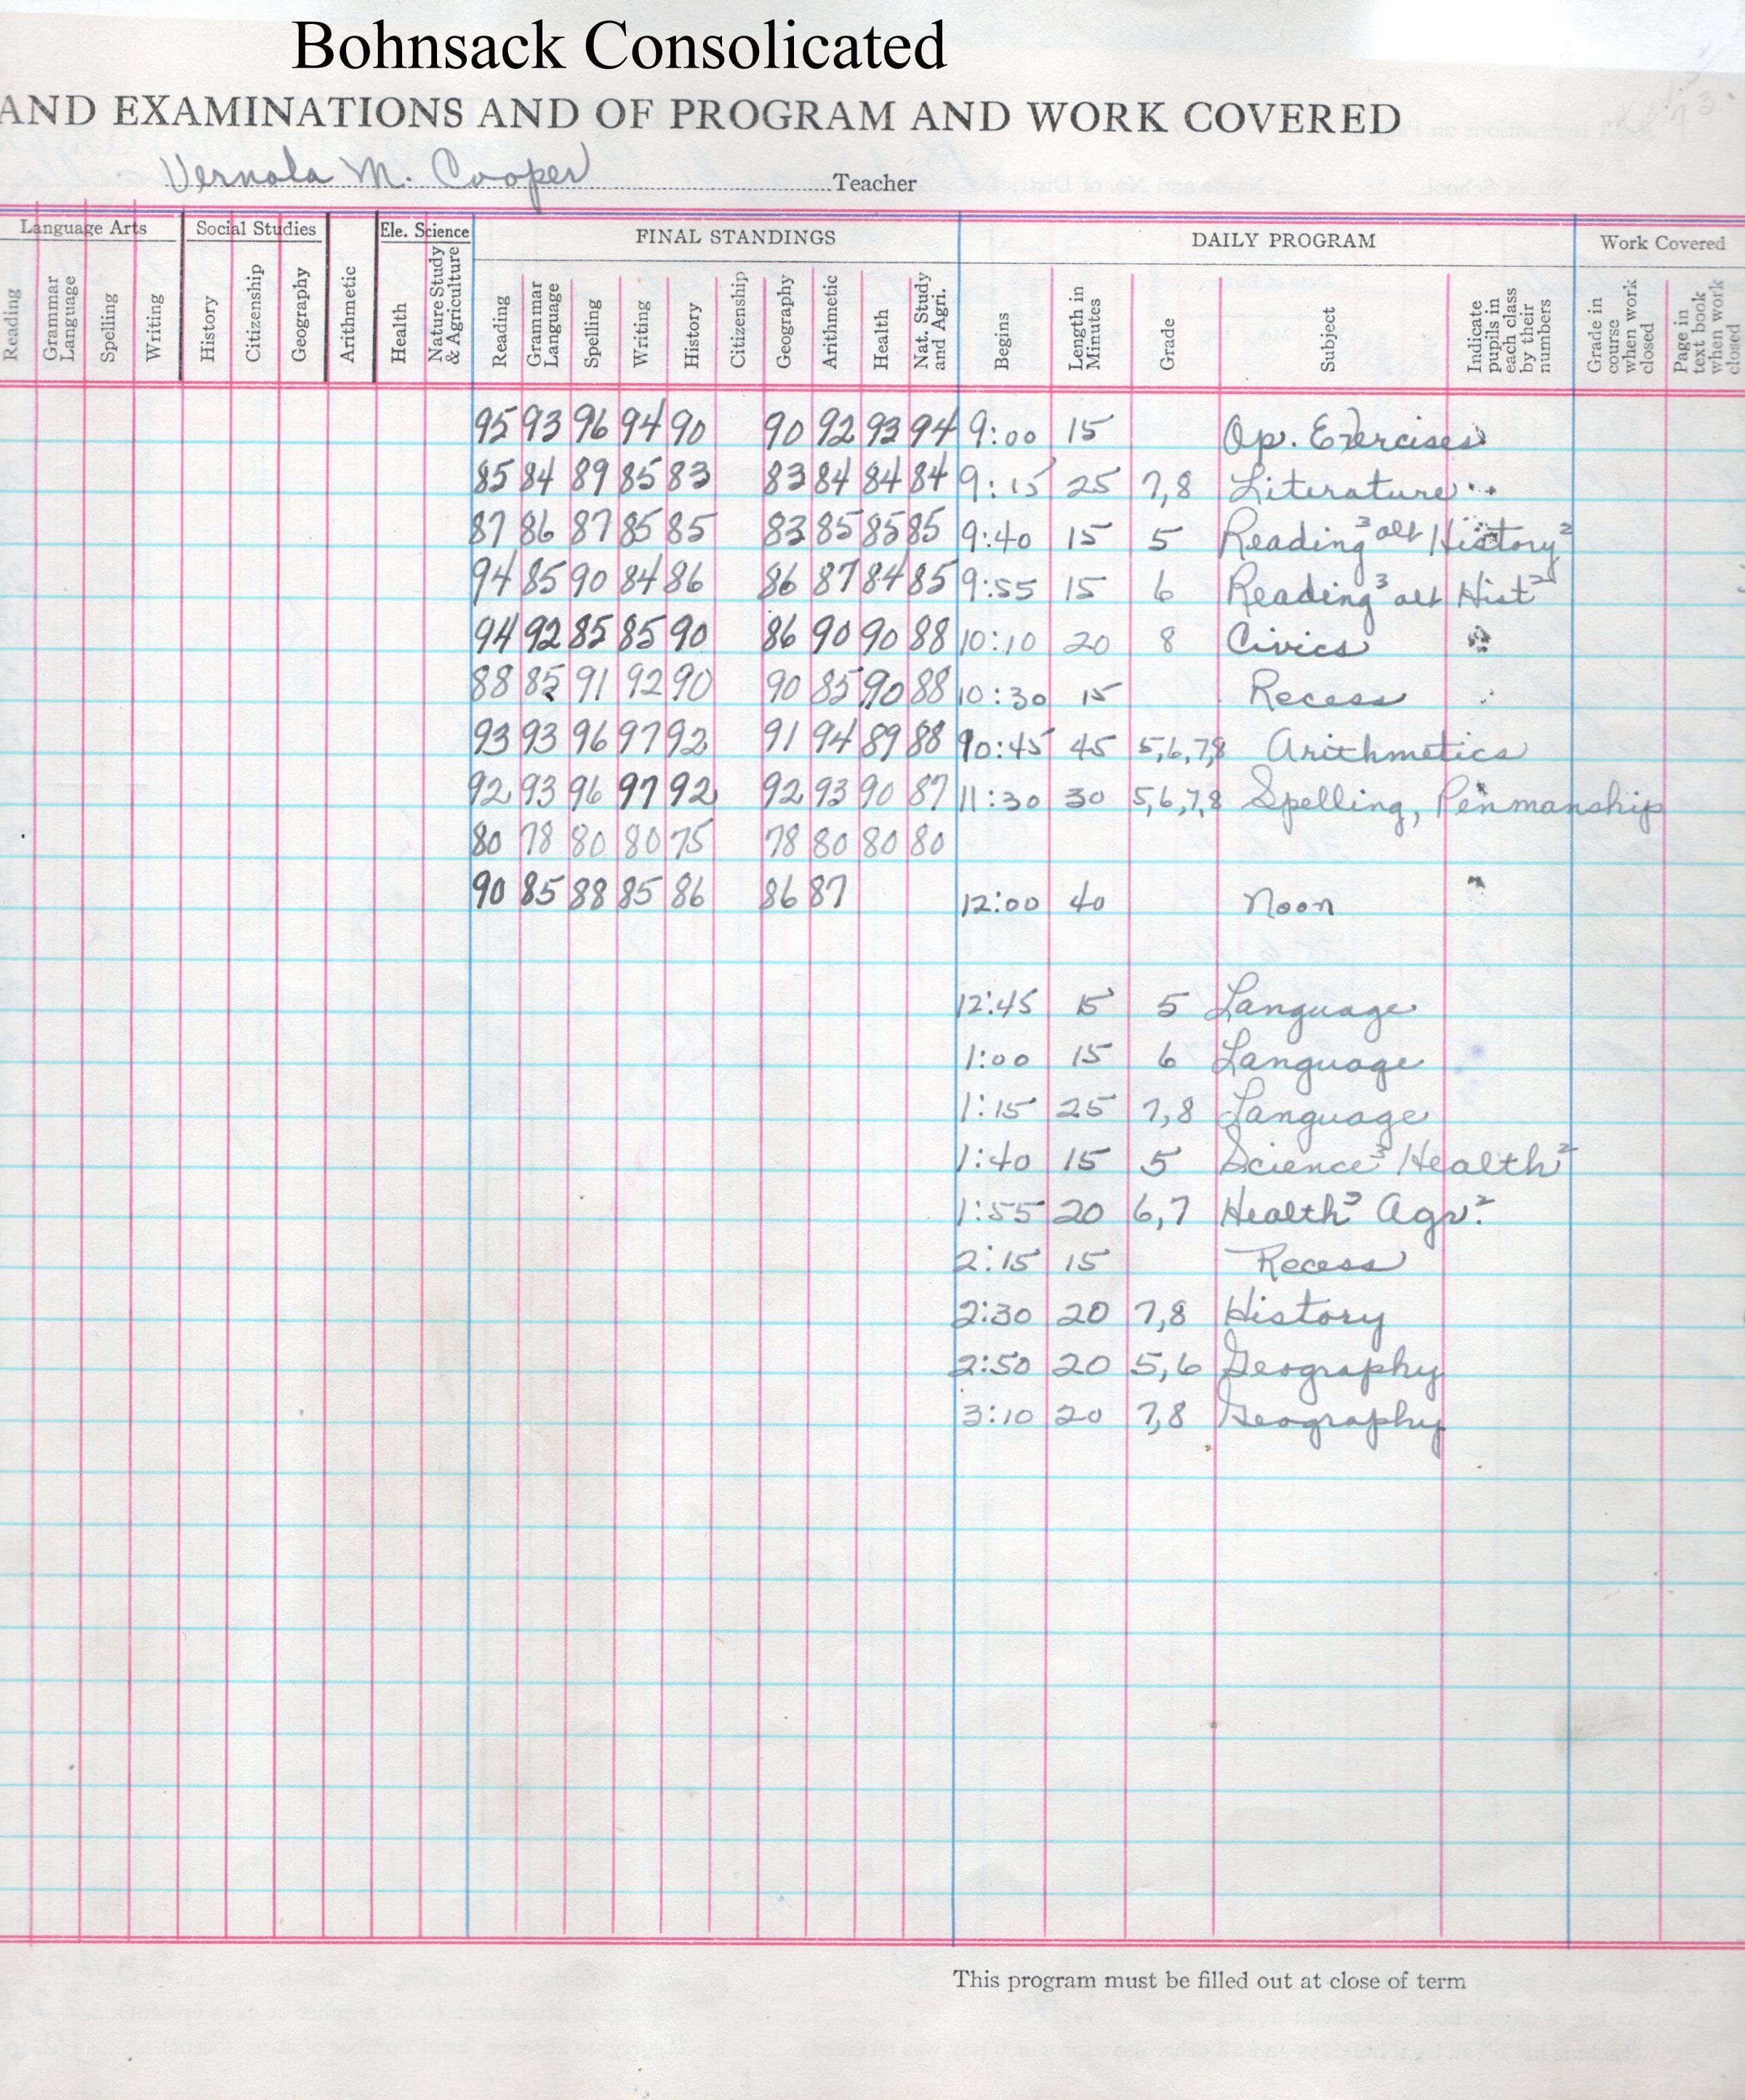 Bohnsack Consolicated
AND EXAMINATIONS AND OF PROGRAM AND WORK COVERED
Vernola M. Cooper Teacher
Language Arts Social Studies Ele. Science FINAL STANDINGS DAILY PROGRAM Work Covered
Reading Grammar Language Spelling Writing History Citizenship Geography Arithmetic Health Nature Study & Agriculture Reading Grammar Language Spelling Writing History Citizenship Geography Arithmetic Health Nat. Study and Agri. Begins Length in Minutes Grade Subject Indicate pupils in each class by their numbers Grade in course when work closed Page in text book when work closed
95 93 96 94 90 90 92 93 94 9:00 15 Op. Exercises
85 84 89 85 83 83 84 84 84 9:15 25 7,8 Literature
87 86 87 85 85 83 85 85 85 9:40 15 5 Reading³ alt History²
94 85 90 84 86 86 87 84 85 9:55 15 6 Reading³ alt Hist²
94 92 85 85 90 86 90 90 88 10:10 20 8 Civics
88 85 91 92 90 90 85 90 88 10:30 15 Recess
93 93 96 97 92 91 94 89 88 10:45 45 5,6,7,8 Arithmetics
92 93 96 97 92 92 93 90 87 11:30 30 5,6,7,8 Spelling, Penmanship
80 78 80 80 75 78 80 80 80
90 85 88 85 86 86 87 12:00 40 Noon
12:45 15 5 Language
1:00 15 6 Language
1:15 25 7,8 Language
1:40 15 5 Science³ Health²
1:55 20 6,7 Health³ Agr.²
2:15 15 Recess
2:30 20 7,8 History
2:50 20 5,6 Geography
3:10 20 7,8 Geography
This program must be filled out at close of term